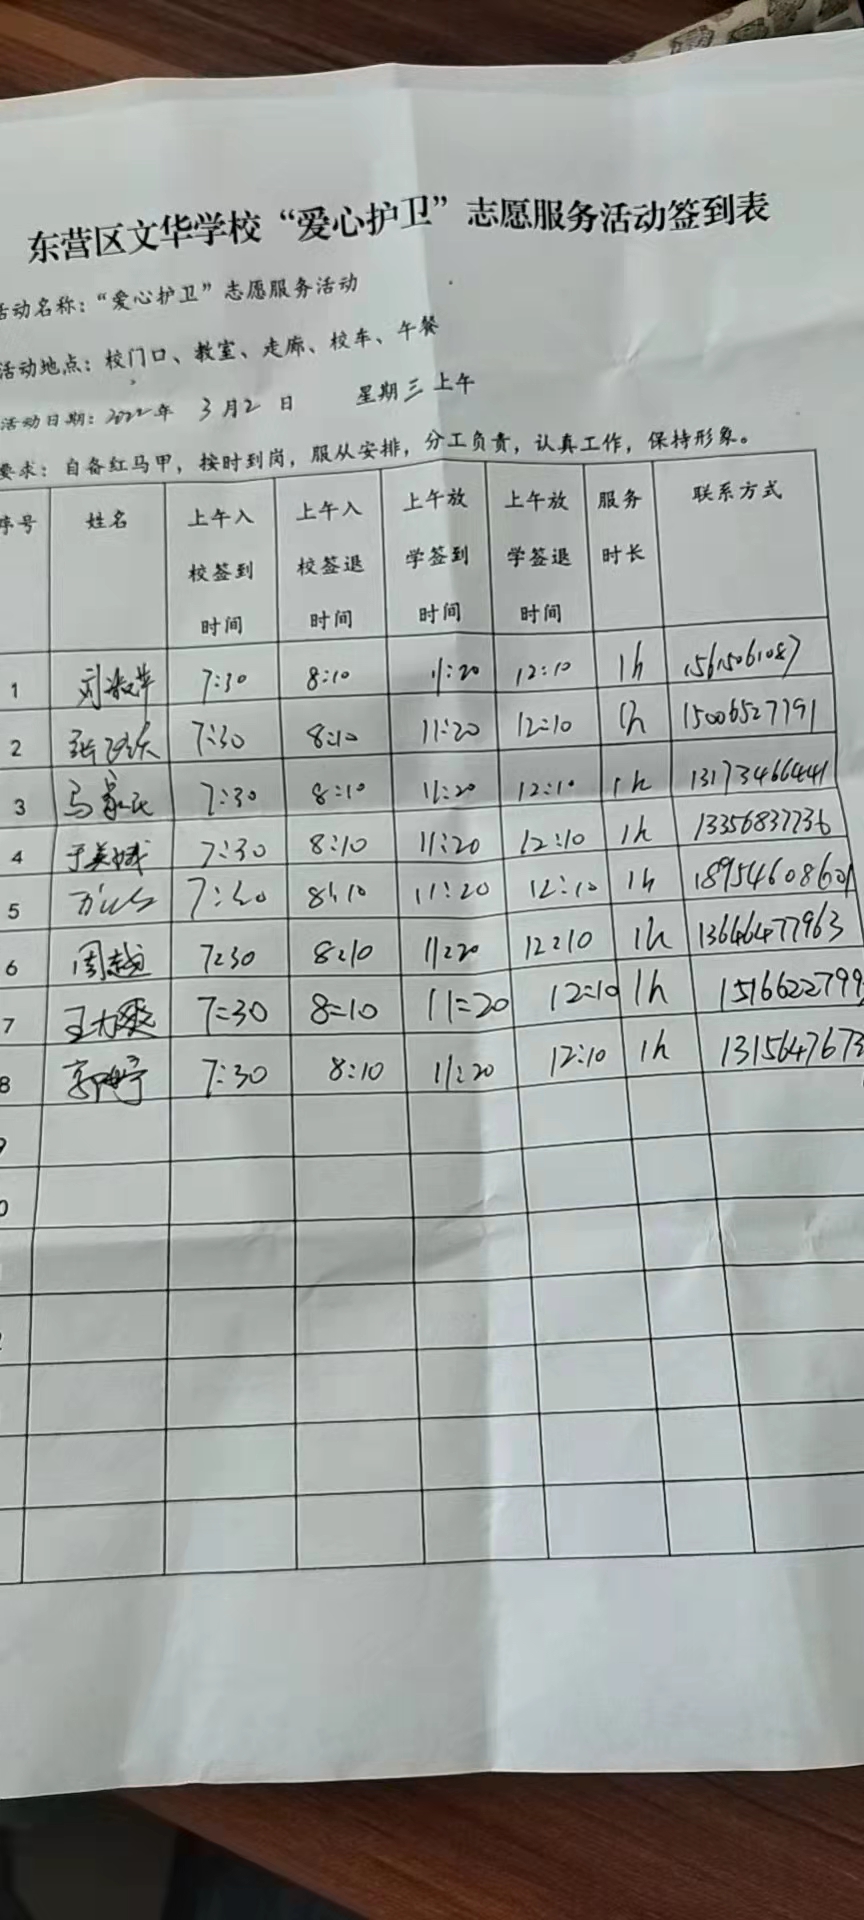 东营区文华学校“爱心护卫”志愿服务活动签到表
活动名称：“爱心护卫”志愿服务活动
活动地点：校门口、教室、走廊、校车、午餐
活动日期：2022年 3月2日 星期三 上午
要求：自备红马甲，按时到岗，服从安排，分工负责，认真工作，保持形象。
序号 姓名 上午入校签到时间 上午入校签退时间 上午放学签到时间 上午放学签退时间 服务时长 联系方式
1 刘淑苹 7:30 8:10 11:20 12:10 1h 15615061087
2 7:30 8:10 11:20 12:10 1h 15006527791
3 7:30 8:10 11:20 12:10 1h 13173466441
4 于美城 7:30 8:10 11:20 12:10 1h 13356837736
5 7:30 8:10 11:20 12:10 1h 18954608601
6 周越 7:30 8:10 11:20 12:10 1h 13646477963
7 7:30 8:10 11:20 12:10 1h 1516622799
8 7:30 8:10 11:20 12:10 1h 1315647673